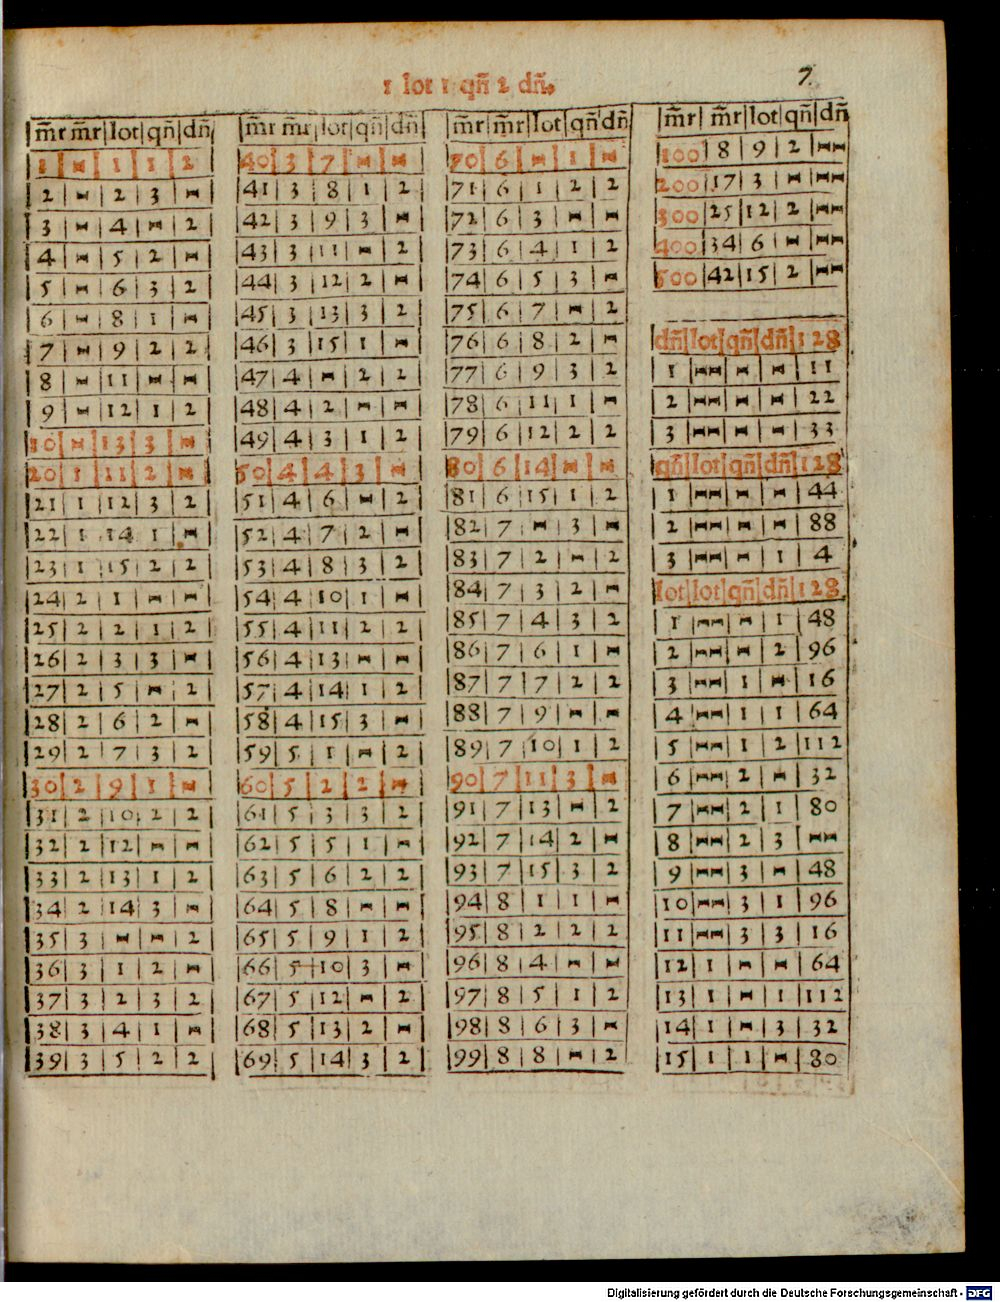 1 lot 1 qñ 2 dñ.
7
m̄r|m̄r|lot|qñ|dñ
1|-|1|1|2
2|-|2|3|-
3|-|4|-|2
4|-|5|2|-
5|-|6|3|2
6|-|8|1|-
7|-|9|2|2
8|-|11|-|-
9|-|12|1|2
10|-|13|3|-
20|1|11|2|-
21|1|12|3|2
22|1|14|1|-
23|1|15|2|2
24|2|1|-|-
25|2|2|1|2
26|2|3|3|-
27|2|5|-|2
28|2|6|2|-
29|2|7|3|2
30|2|9|1|-
31|2|10|2|2
32|2|12|-|-
33|2|13|1|2
34|2|14|3|-
35|3|-|-|2
36|3|1|2|-
37|3|2|3|2
38|3|4|1|-
39|3|5|2|2
m̄r|m̄r|lot|qñ|dñ
40|3|7|-|-
41|3|8|1|2
42|3|9|3|-
43|3|11|-|2
44|3|12|2|-
45|3|13|3|2
46|3|15|1|-
47|4|-|2|2
48|4|2|-|-
49|4|3|1|2
50|4|4|3|-
51|4|6|-|2
52|4|7|2|-
53|4|8|3|2
54|4|10|1|-
55|4|11|2|2
56|4|13|-|-
57|4|14|1|2
58|4|15|3|-
59|5|1|-|2
60|5|2|2|-
61|5|3|3|2
62|5|5|1|-
63|5|6|2|2
64|5|8|-|-
65|5|9|1|2
66|5|10|3|-
67|5|12|-|2
68|5|13|2|-
69|5|14|3|2
m̄r|m̄r|lot|qñ|dñ
70|6|-|1|-
71|6|1|2|2
72|6|3|-|-
73|6|4|1|2
74|6|5|3|-
75|6|7|-|2
76|6|8|2|-
77|6|9|3|2
78|6|11|1|-
79|6|12|2|2
80|6|14|-|-
81|6|15|1|2
82|7|-|3|-
83|7|2|-|2
84|7|3|2|-
85|7|4|3|2
86|7|6|1|-
87|7|7|2|2
88|7|9|-|-
89|7|10|1|2
90|7|11|3|-
91|7|13|-|2
92|7|14|2|-
93|7|15|3|2
94|8|1|1|-
95|8|2|2|2
96|8|4|-|-
97|8|5|1|2
98|8|6|3|-
99|8|8|-|2
m̄r|m̄r|lot|qñ|dñ
100|8|9|2|--
200|17|3|-|--
300|25|12|2|--
400|34|6|-|--
500|42|15|2|--
dñ|lot|qñ|dñ|128
1|--|-|-|11
2|--|-|-|22
3|--|-|-|33
qñ|lot|qñ|dñ|128
1|--|-|-|44
2|--|-|-|88
3|--|-|1|4
lot|lot|qñ|dñ|128
1|--|-|1|48
2|--|-|2|96
3|--|1|-|16
4|--|1|1|64
5|--|1|2|112
6|--|2|-|32
7|--|2|1|80
8|--|2|3|--
9|--|3|-|48
10|--|3|1|96
11|--|3|3|16
12|1|-|-|64
13|1|-|1|112
14|1|-|3|32
15|1|1|-|80
Digitalisierung gefördert durch die Deutsche Forschungsgemeinschaft - DFG